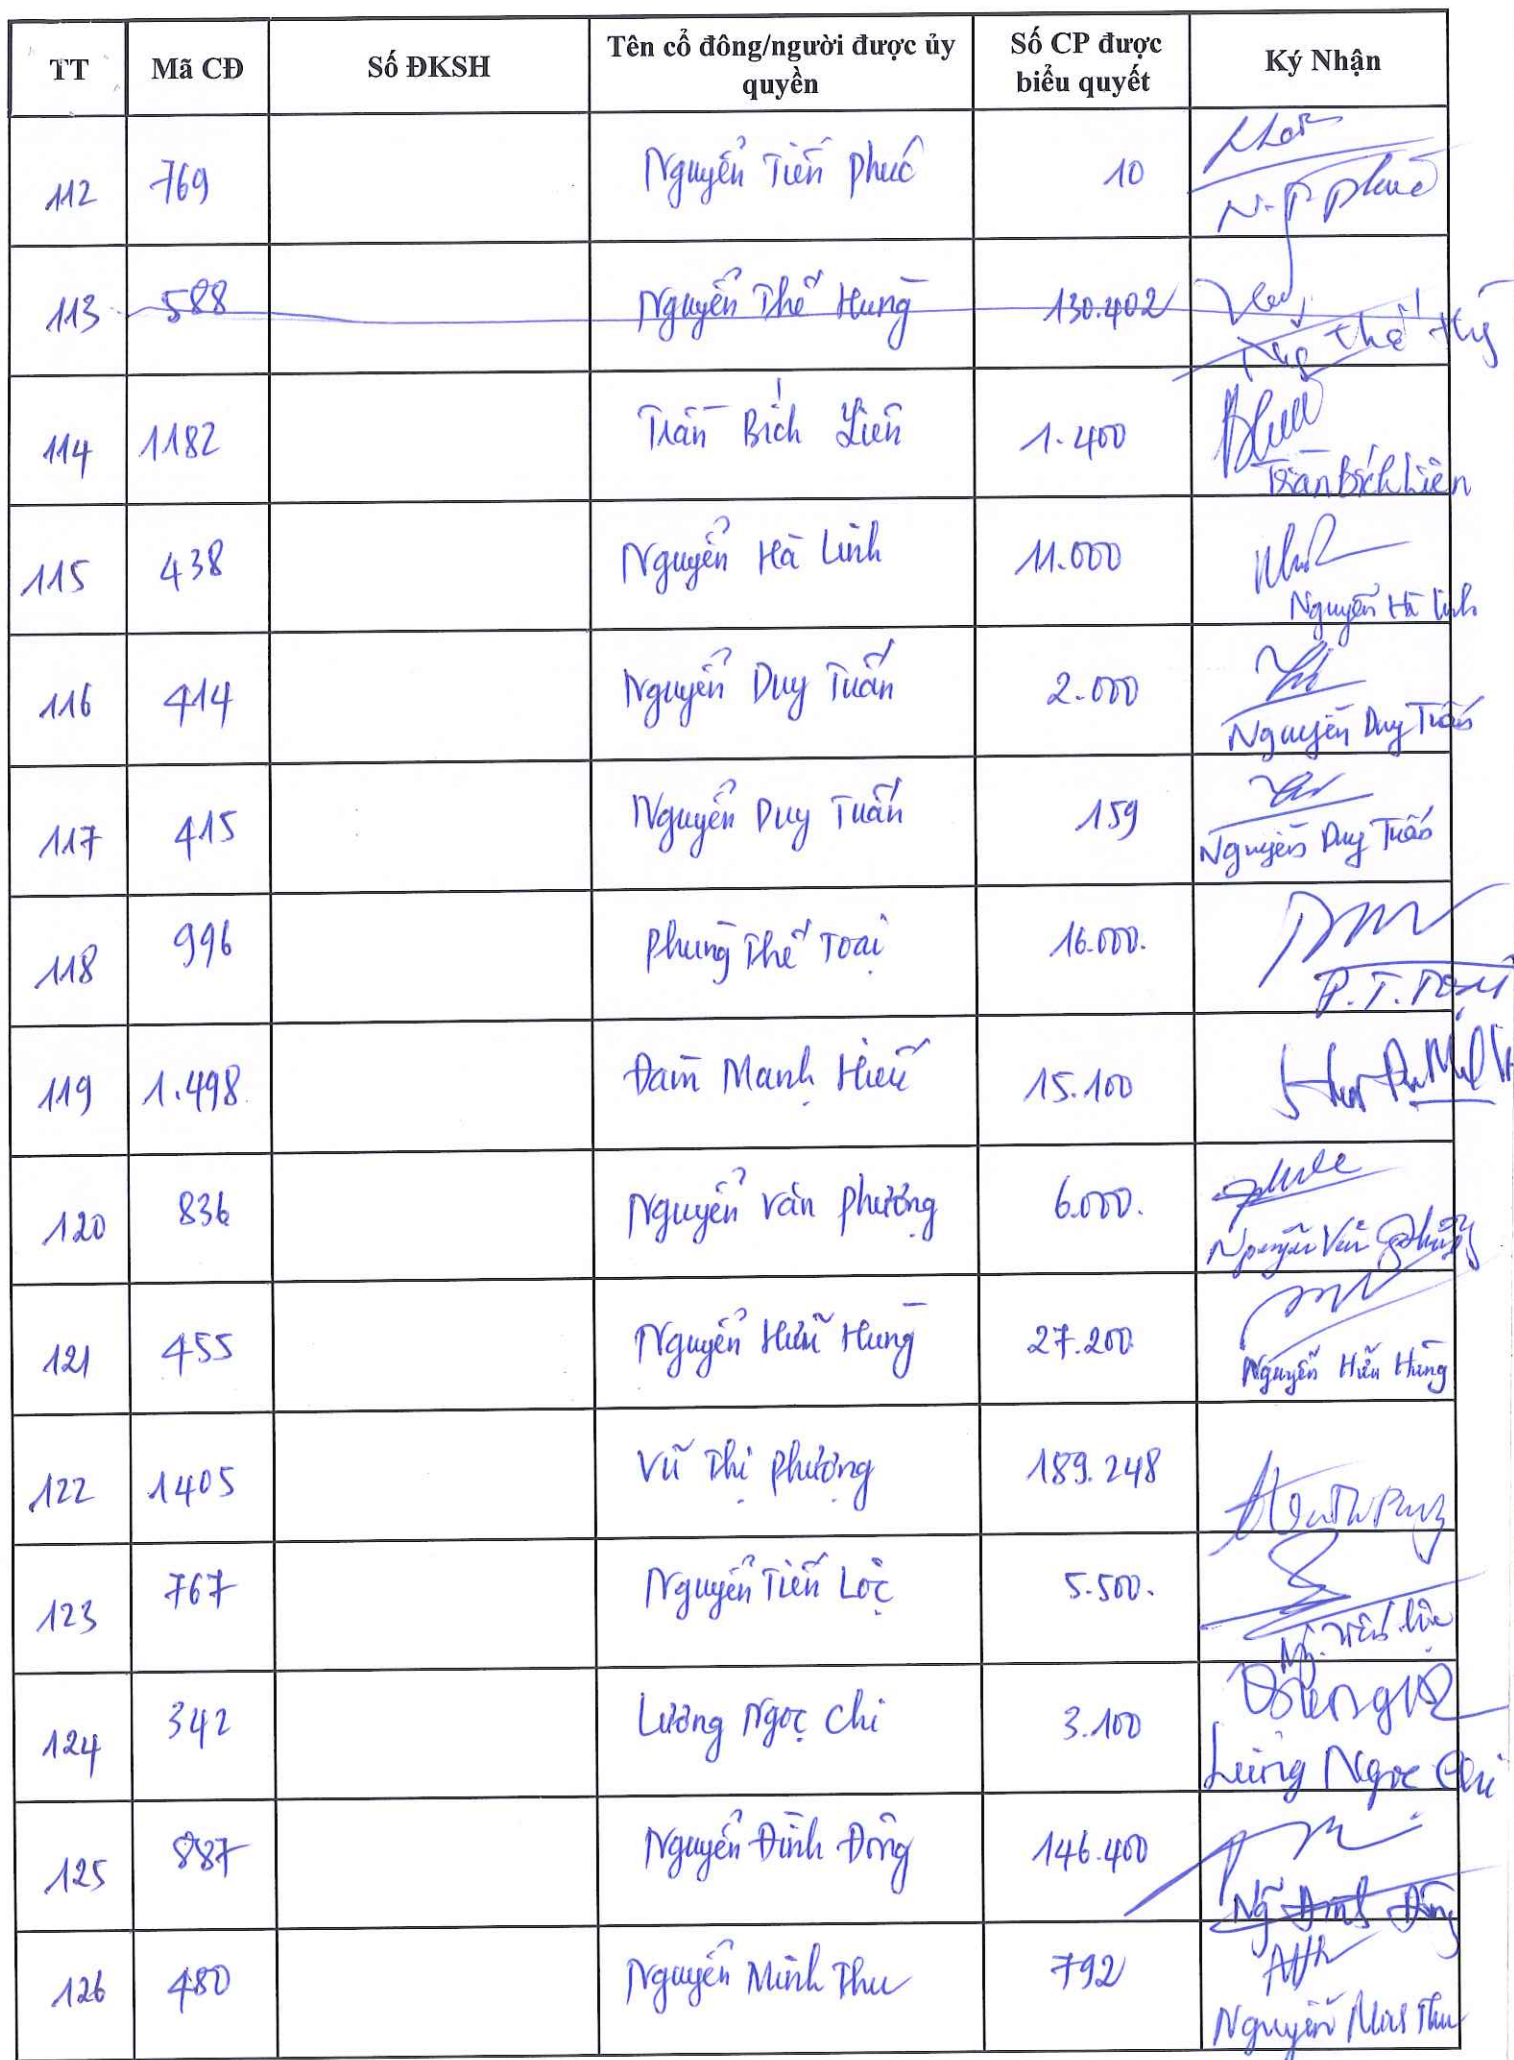 TT Mã CĐ Số ĐKSH Tên cổ đông/người được ủy quyền Số CP được biểu quyết Ký Nhận
112 769 Nguyễn Tiến Phúc 10
N.T Phúc
113 588 Nguyễn Thế Hùng 130.402
Ng Thế
114 1182 Trần Bích Liên 1.400
Trần Bích Liên
115 438 Nguyễn Hà Linh 11.000
Nguyễn Hà Linh
116 414 Nguyễn Duy Tuấn 2.000
Nguyễn Duy Tuấn
117 415 Nguyễn Duy Tuấn 159
Nguyễn Duy Tuấn
118 996 Phùng Thế Toại 16.000.
P.T.Toại
119 1.498 Đàm Mạnh Hiếu 15.100
120 836 Nguyễn Văn Phượng 6.000.
Nguyễn Văn
121 455 Nguyễn Hữu Hùng 27.200.
Nguyễn Hữu Hùng
122 1405 Vũ Thị Phượng 189.248
123 767 Nguyễn Tiến Lộc 5.500.
Ng. Tiến Lộc
124 342 Lương Ngọc Chi 3.100
Lương Ngọc Chi
125 887 Nguyễn Đình Đông 146.400
Ng Đình Đông
126 480 Nguyễn Minh Thu 792
Nguyễn Minh Thu